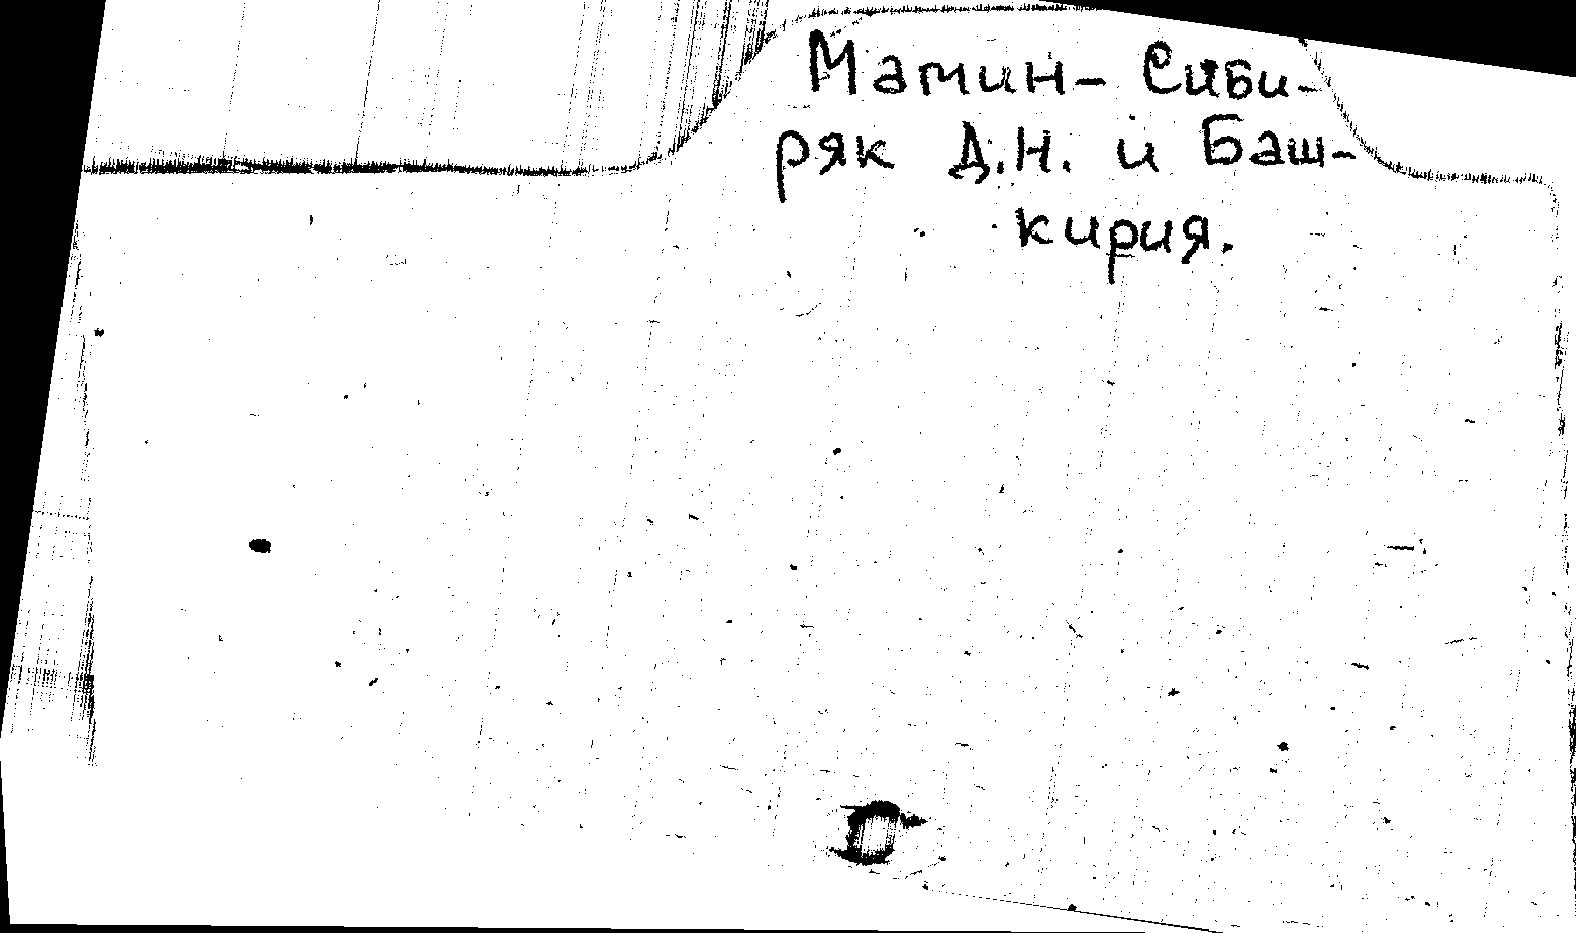 Мамин- Сиби-
ряк Д.Н. и Баш-
кирия.